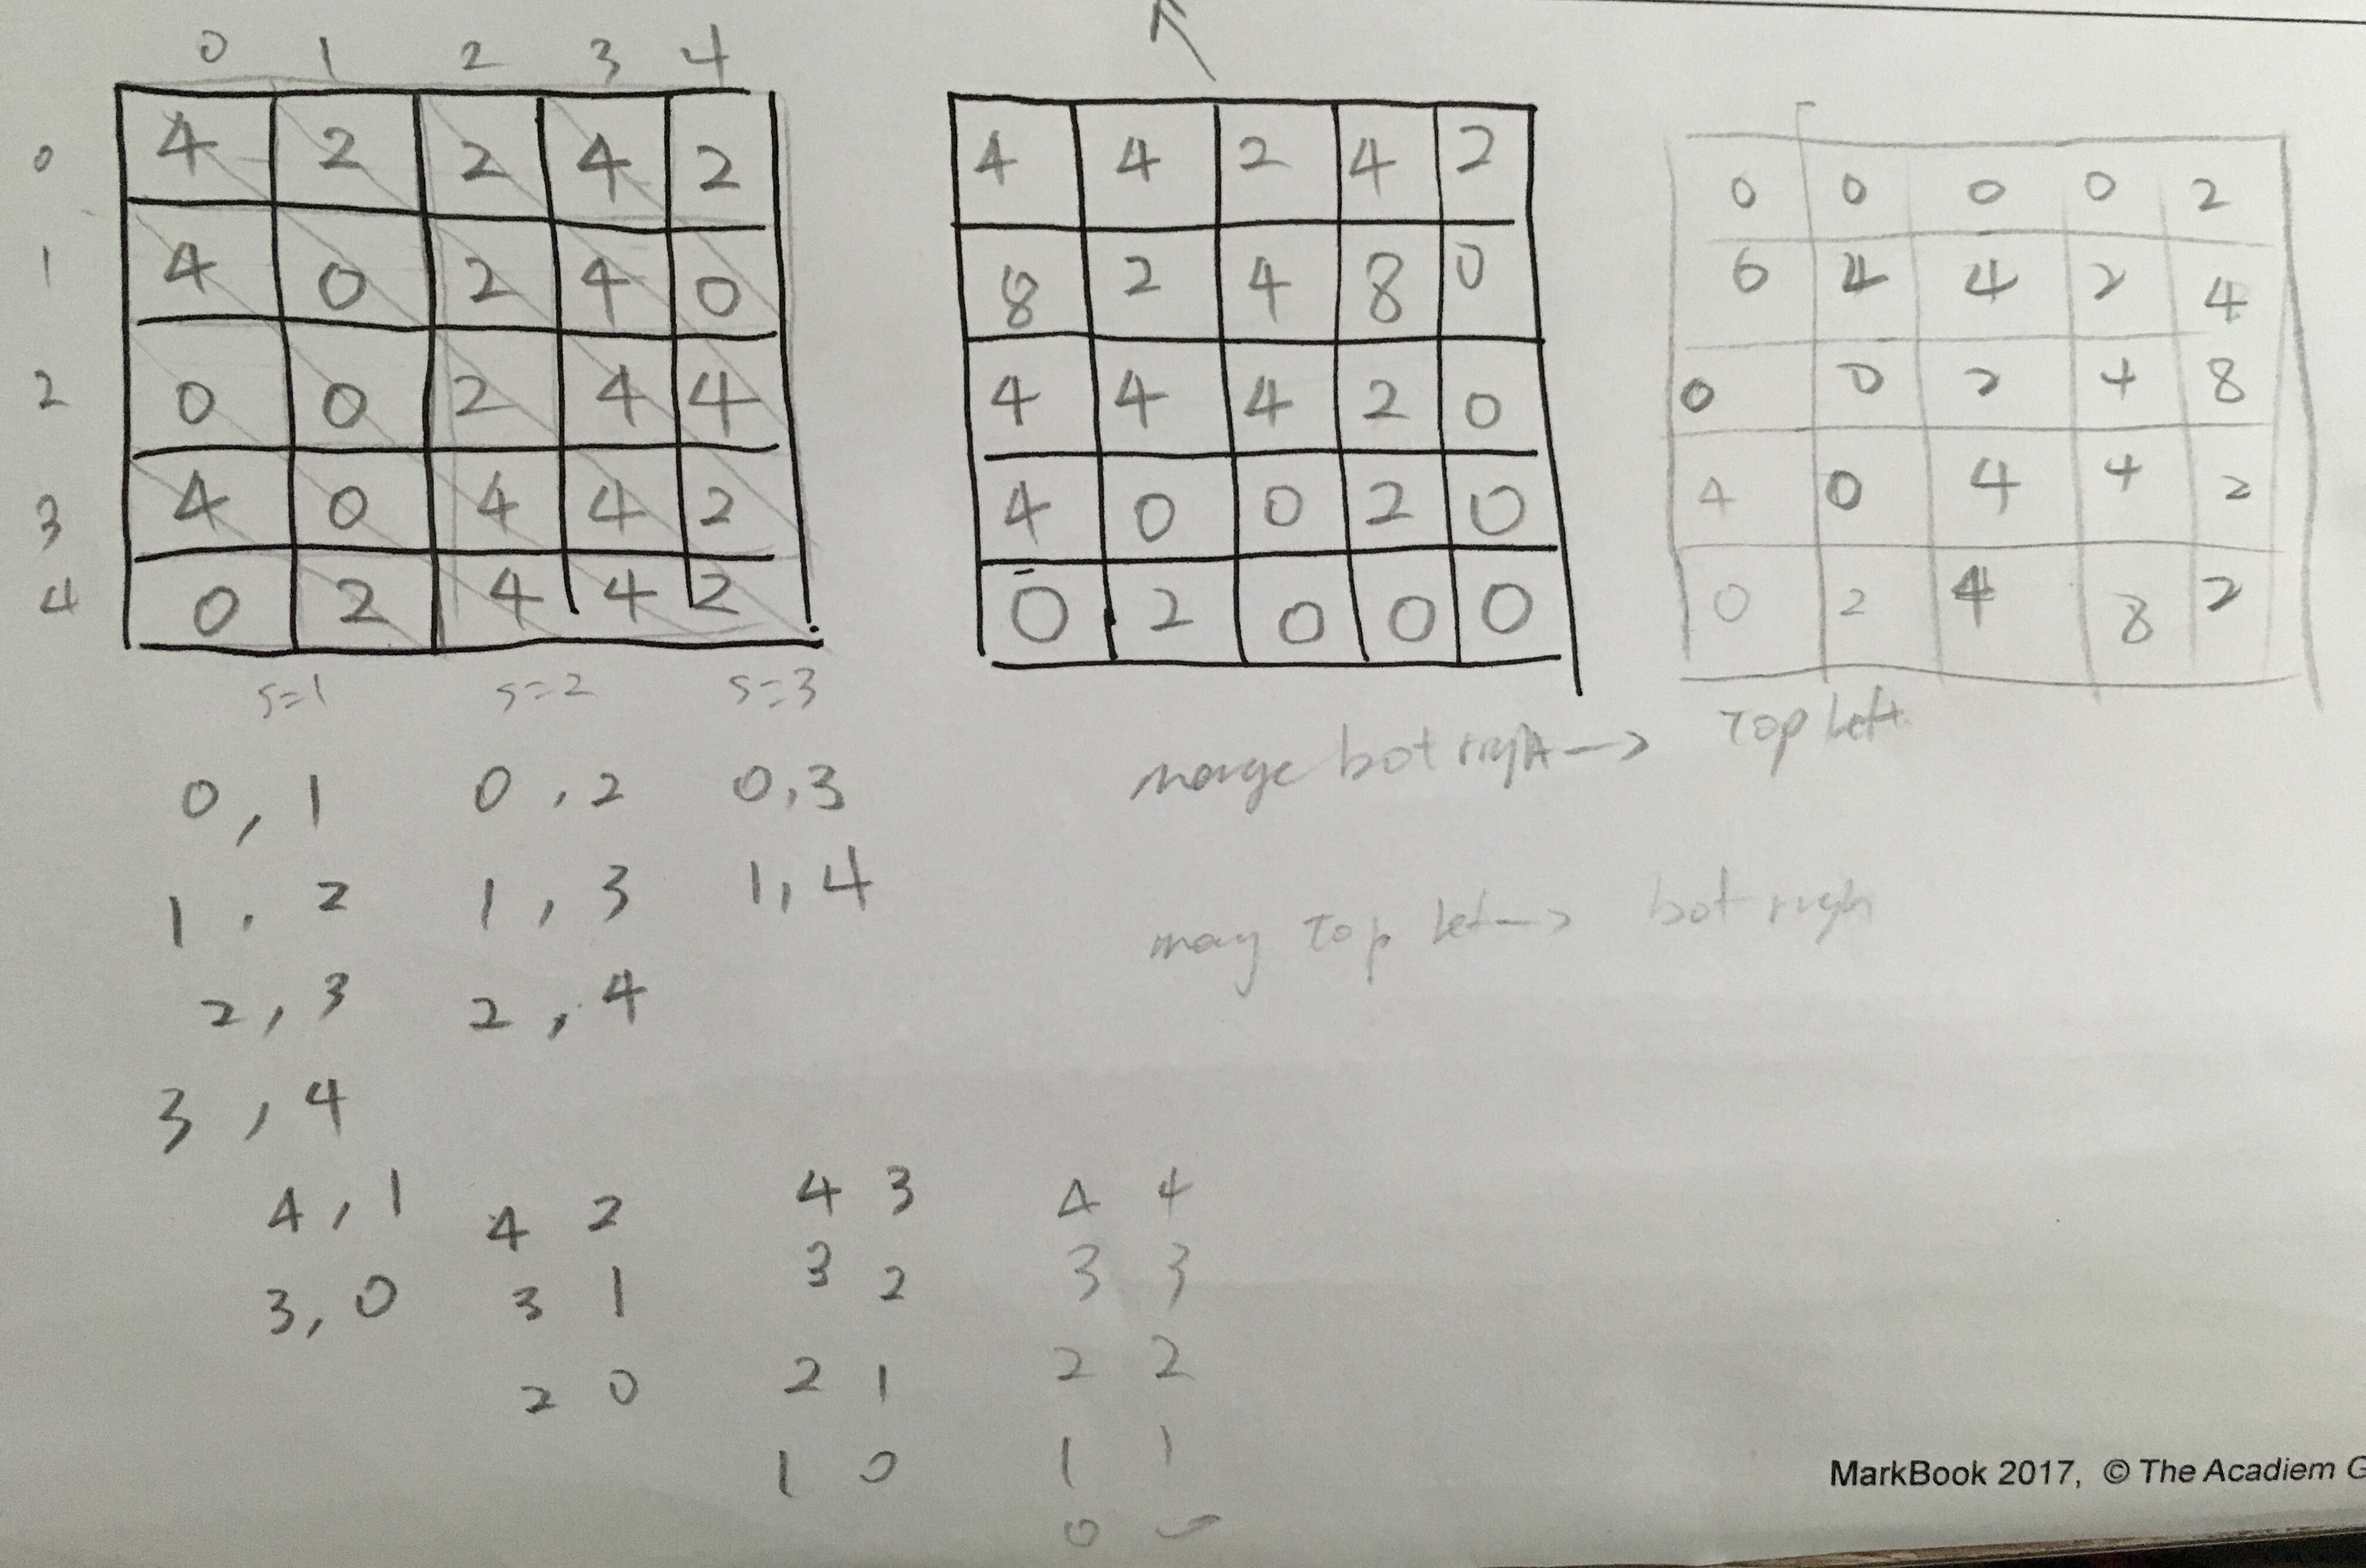 0 1 2 3 4
0 4 2 2 4 2
1 4 0 2 4 0
2 0 0 2 4 4
3 4 0 4 4 2
4 0 2 4 4 2
s=1 s=2 s=3
4 4 2 4 2
8 2 4 8 0
4 4 4 2 0
4 0 0 2 0
0 2 0 0 0
0 0 0 0 2
0 4 4 2 4
0 0 2 4 8
4 0 4 4 2
0 2 4 8 2
merge bot right → Top Left
Top Left → bot righ
0, 1 0, 2 0,3
1, 2 1, 3 1, 4
2, 3 2, 4
3, 4
4, 1 4 2 4 3 4 4
3, 0 3 1 3 2 3 3
2 0 2 1 2 2
1 0 1 1
0 0
MarkBook 2017, © The Acadiem G